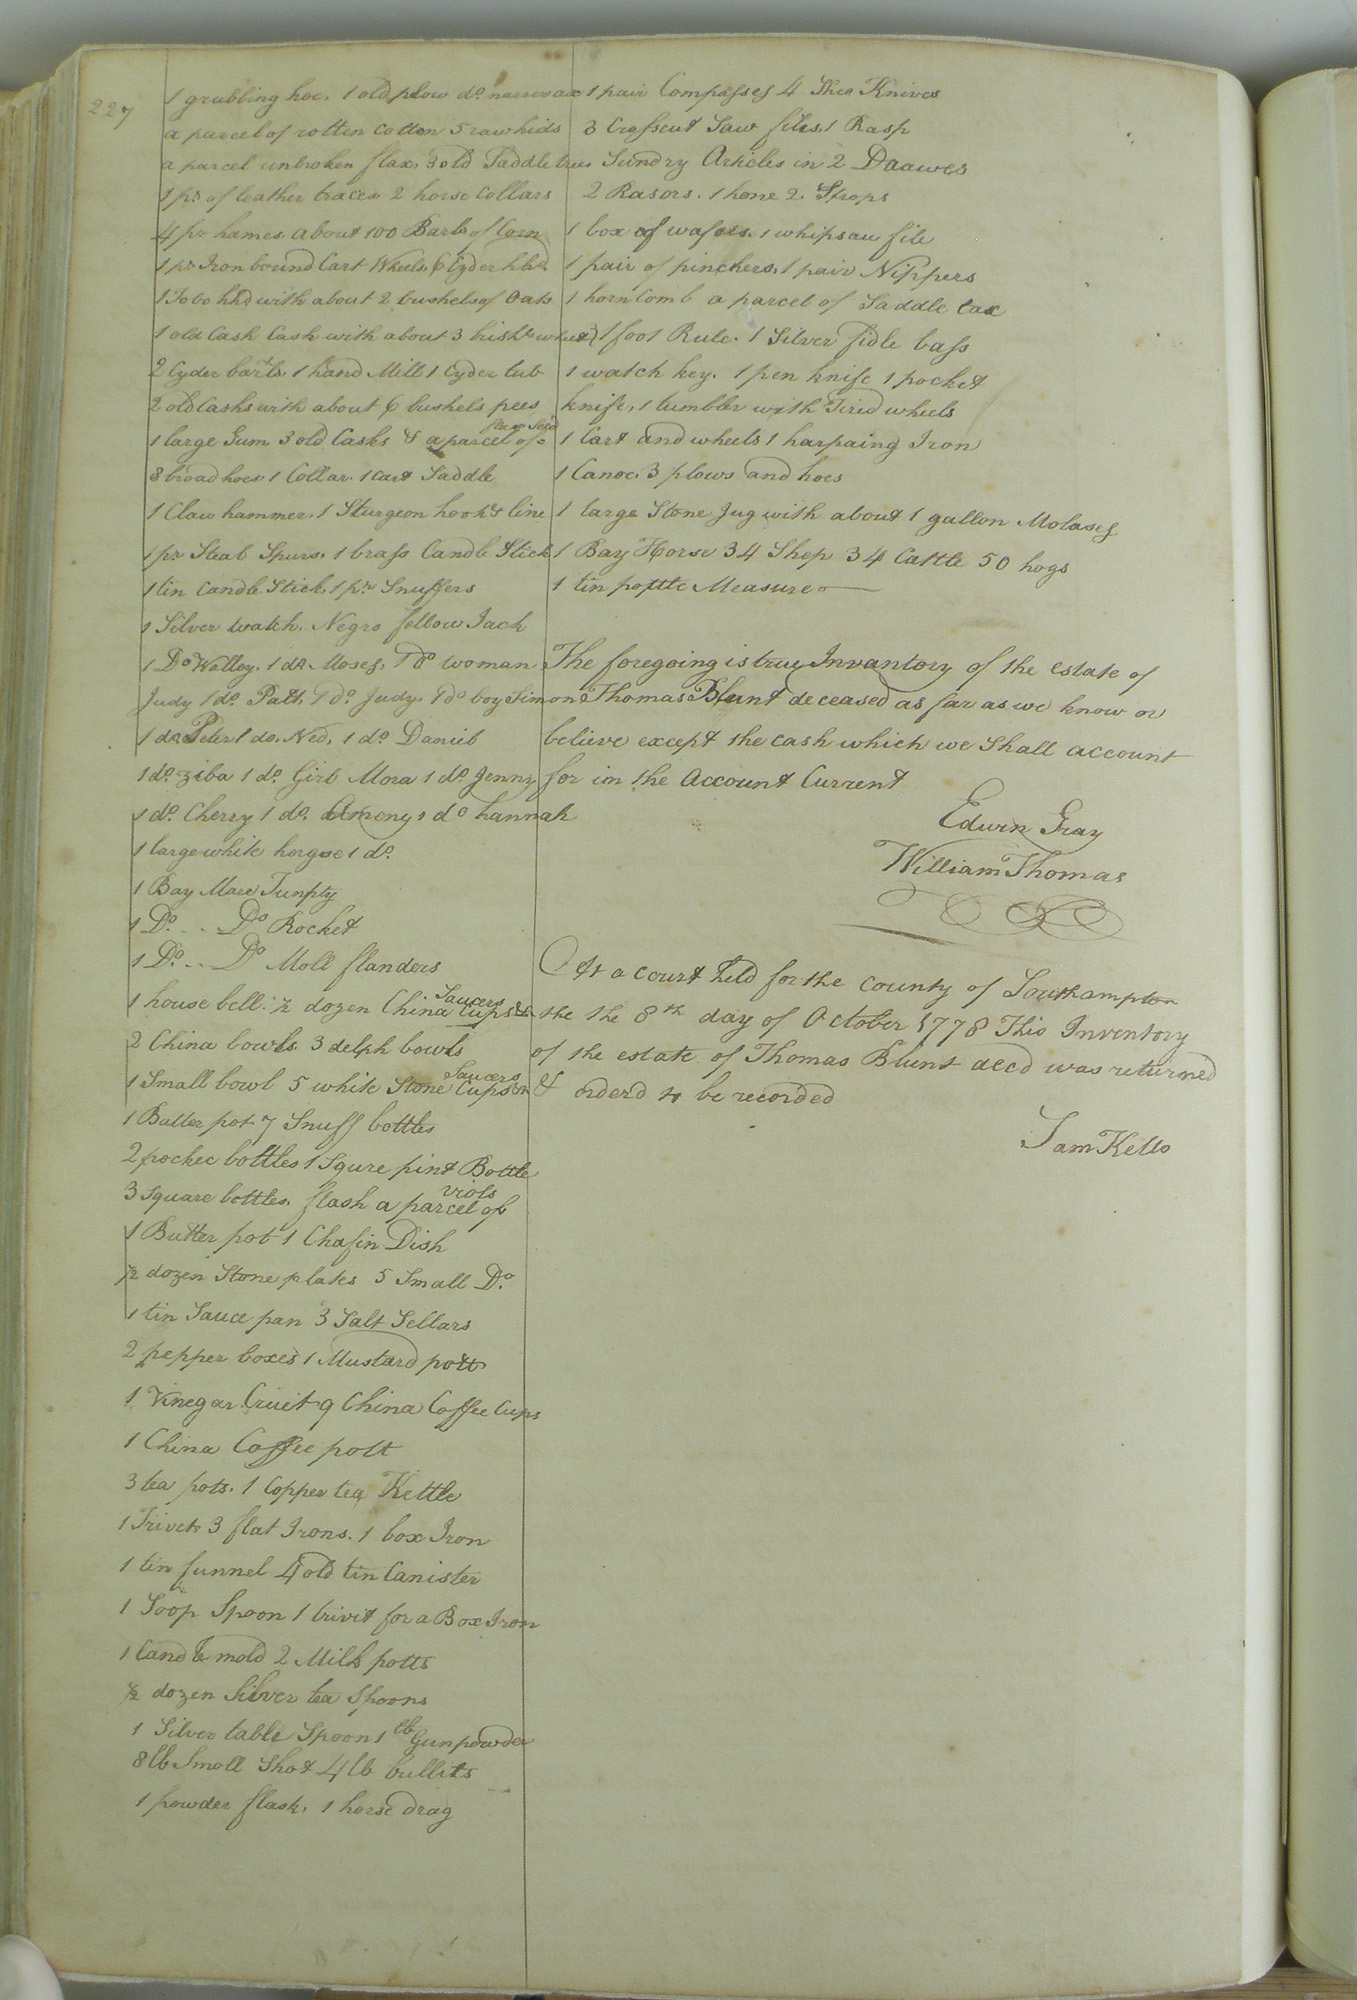 227
1 grubbing hoe, 1 old plow do. narrow ax
a parcel of rotten Cotton 5 rawhids
a parcel unbroken flax, 3 old Saddle trees
1 pr. of leather traces 2 horse Collars
4 pr. hames about 100 Barls of Corn
1 pr. Iron bound Cart Wheels, 6 Cyder hhds
1 Tobo hhd with about 2 bushels of Oats
1 old Cask Cask with about 3 bishls wheat
2 Cyder barls. 1 hand Mill 1 Cyder tub
2 old Casks with about 6 bushels pees
1 large Gum 3 old Casks & a parcel of flax Seed
8 broad hoes 1 Collar. 1 Cart Saddle
1 Claw hammer. 1 Sturgeon hook & line
1 pr. Steal Spurs. 1 brass Candle Stick
1 tin Candle Stick 1 pr. Snuffers
1 Silver watch. Negro fellow Jack
1 Do Walley. 1 do. Moses, 1 do woman
Judy 1 do. Patt, 1 do. Judy. 1 do boy Simon
1 do. Peter 1 do. Ned, 1 do Daniel
1 do. Ziba 1 do. Girl Mora 1 do Jenny
1 do. Cherry 1 do. Ameny 1 do hannah
1 large white horgse 1 do.
1 Bay Mare Tunpty
1 Do. .. Do Rocket
1 Do. .. Do Moll flanders
1 house bell. ½ dozen China Cups & Saucers
2 China bowls. 3 delph bowls
1 Small bowl 5 white Stone Cups & Saucers
1 Butter pot 7 Snuff bottles
2 pockec bottles 1 Squre pint Bottle
3 Square bottles. flask a parcel of viols
1 Butter pot 1 Chafin Dish
½ dozen Stone plates 5 Small Do.
1 tin Sauce pan 3 Salt Sellars
2 pepper boxes 1 Mustard pott
1 Vinegar Cruit 9 China Coffee Cups
1 China Coffee pott
3 tea pots. 1 Copper tea Kettle
1 Trivet 3 flat Irons. 1 box Iron
1 tin funnel 4 old tin Canister
1 Soop Spoon 1 trivit for a Box Iron
1 Candle mold 2 Milk potts
½ dozen Silver tea Spoons
1 Silver table Spoon 1 lb Gunpowder
8 lb Smoll Shot 4 lb bullits
1 powder flask, 1 horse drag
1 pair Compasses 4 Shea Knives
3 Crosscut Saw files, 1 Rasp
Sundry Articles in 2 Daawes
2 Rasors. 1 hone 2. Strops
1 box of wafers. 1 whipsaw file
1 pair of pinchers, 1 pair Nippers
1 horn Comb a parcel of Saddle tax
1 foot Rule. 1 Silver fidle bass
1 watch key. 1 pen knife 1 pocket
knife, 1 tumbler with Tired wheels
1 Cart and wheels 1 harpaing Iron
1 Canoe, 3 plows and hoes
1 large Stone Jug with about 1 gallon Molases
1 Bay Horse 34 Shep 34 Cattle 50 hogs
1 tin pottle Measure
The foregoing is true Invantory of the estate of
Thomas Blunt deceased as far as we know or
believe except the cash which we Shall account
for in the Account Current
Edwin Gray
William Thomas
At a Court held for the County of Southampton
the the 8th day of October 1778 This Inventory
of the estate of Thomas Blunt decd was returned
& orderd to be recorded
Sam Kello